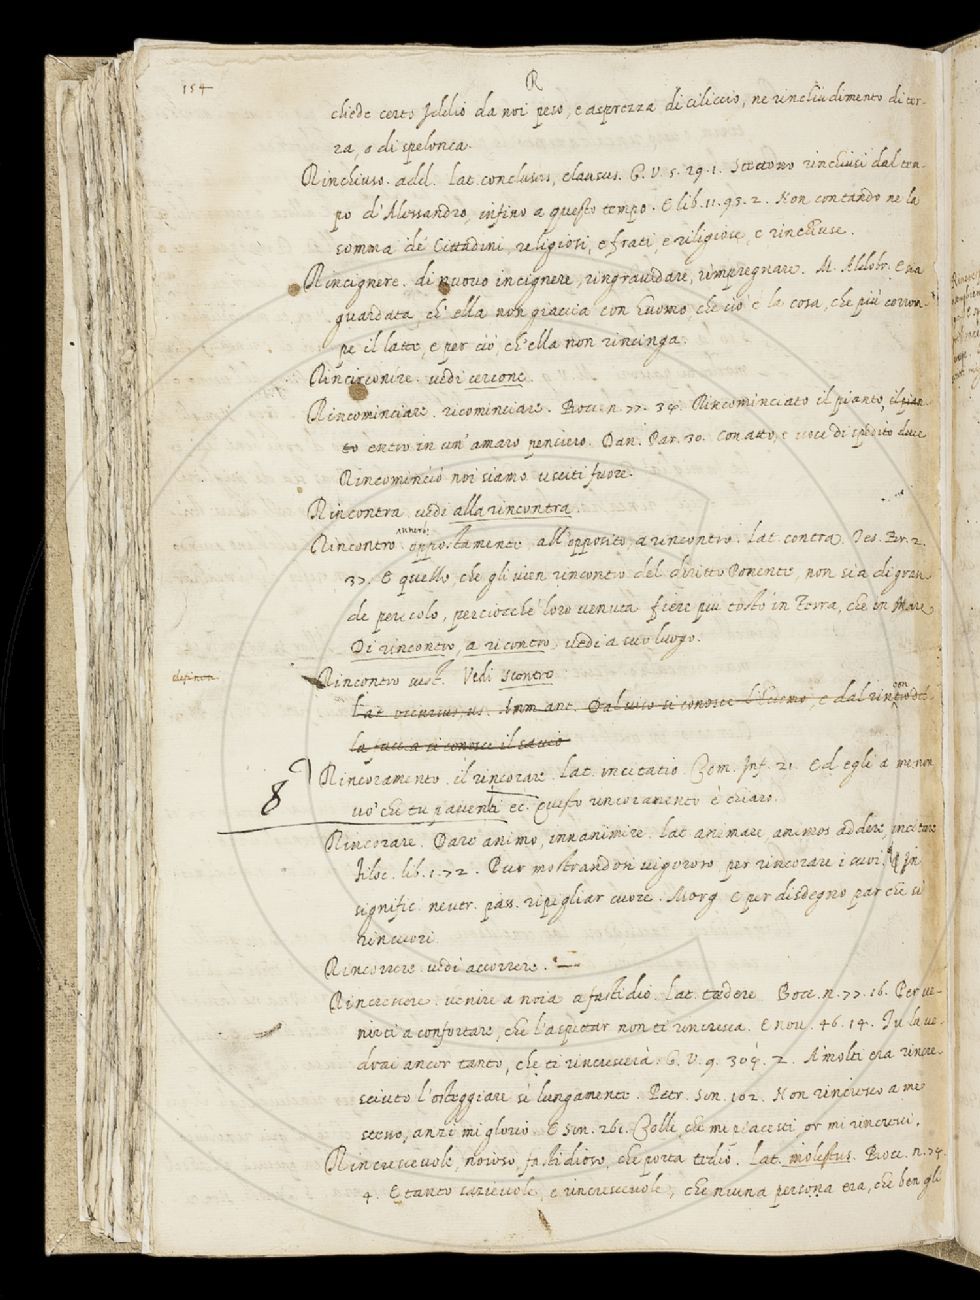 154
R
chiede certo Iddio da noi peso, e asprezza di ciliccio, ne rinchiudimento di ter-
ra, o di spelonca.
Rinchiuso. add. Lat. conclusus, clausus. G. V. 5. 29. 1. Stettono rinchiusi dal tem-
po d'Alessandro, infino a questo tempo. E lib. 11. 93. 2. Non contando ne la
somma de' Cittadini, religiosi, e frati, e religiose, e rinchiuse.
Rincignere. di nuovo incignere, ringravidare, rimpregnare. M. Aldobr. E sia
guardata, ch'ella non giaccia con huomo, che ciò è la cosa, che più corrom-
pe il latte, e per ciò, ch'ella non rincinga.
Rincirconire. vedi cercone.
Rincominciare. ricominciare. Bocc. n. 77. 34. Rincominciato il pianto, il pian-
to entro in un' amaro pensiero. Dan. Par. 30. Con atto, e voce di spedito duce
Rincominciò noi siamo usciti fuore.
Rincontra. vedi alla rincontra.
avverb.
Rincontro. oppostamente all'opposito, a rincontro. Lat. contra. Tes. Br. 2.
37. E quello, che gli vien rincontro del diritto Ponente, non sia di gran
de pericolo, perciocchè loro venuta fiere piu tosto in Terra, che in Mare
Di rincontro, a rincontro, vedi a suo luogo.
Rincontro sust. Vedi Scontro
con
Lat. occursus, us. Amm. ant. Dal viso si conosce l'huomo, e dal rintro del
la faccia si conosce il savio
8
Rincoramento. il rincorare. Lat. incitatio. Com. Inf. 21. Ed egli a me non
vo' che tu paventi ec. Questo rincoramento è chiaro.
Rincorare. Dare animo, innanimire. Lat. animare, animos addere, incitare
Filoc. lib. 1. 72. Pur mostrandosi vigoroso, per rincorare i suoi. In
signific. neutr. pass. ripigliar cuore. Morg. E per disdegno par che si
rincuori
Rincorrere. vedi accorrere.
Rincrescere. venire a noia a fastidio. Lat. taedere Bocc. n. 77. 16. Per ve-
nirti a confortare, che l'aspettar non ti rincresca. E nov. 46. 14. Tu la ve-
drai ancor tanto, che ti rincrescerà. G. V. 9. 304. 2. A molti era rincre-
sciuto l'osteggiare sì lungamente. Petr. Son. 102. Non rincresco a me
stesso, anzi mi glorio. E Son. 261. Colle, che mi piacesti, or mi rincresci.
Rincrescevole, noioso, fastidioso, che porta tedio. Lat. molestus. Bocc. n. 74.
4. E tanto sazievole, e rincrescevole, che niuna persona era, che ben gli